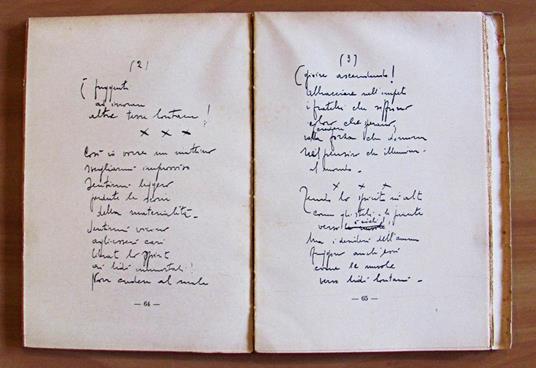 (2)
fuggenti
ad ignorare
altre terre lontane!
x x x
Così io vorrei un mattino
svegliarmi improvviso
Sentirmi leggero
perdute le some
della materialità -
Sentirmi vicino
agli esseri cari
librat lo spirit
ai lidi immortali!
Non cedere al male
— 64 —
(3)
gioire ascendendo!
abbracciare nell'impeto
i fratelli che soffrono
coloro che penano,
nella forza che
nel pensiero che illumina
il mondo -
x x x
Tendo lo spirito in alto
come gli steli, le piante
verso i cieli!
Ma i desideri dell'anima
fuggono anch'essi
come le nuvole
verso lidi lontani -
— 65 —